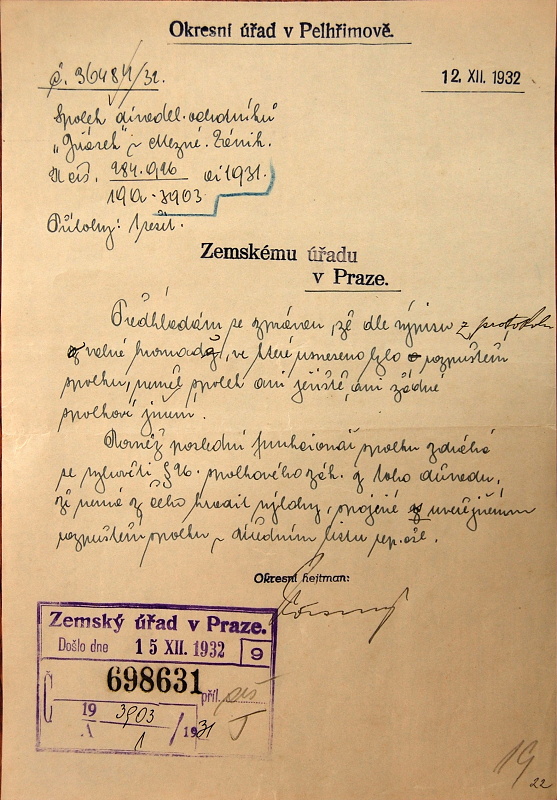 Okresní úřad v Pelhřimově.
Č. 36484/32.
12. XII. 1932
Spolek
v Mezné.
N čís. 284.926 ai 1931.
190. - 3903
Přílohy: 1 sešit.
Zemskému úřadu
v Praze.
Předkládám se zprávou, že dle výpisu z protokolu
valné hromady, ve které usneseno bylo rozpuštění
spolku, neměl spolek ani jeviště, ani žádné
spolkové jmění.
Rovněž poslední funkcionář spolku zdráhá
se vyhověti § 26. spolkového zák. z toho důvodu,
že nemá z čeho hradit výlohy, spojené s uveřejněním
rozpuštění spolku v úředním listu rep. čsl.
Okresní hejtman:
Zemský úřad v Praze.
Došlo dne 15 XII. 1932 9
698631
příl.
19 3903 / 1931
1
19
22